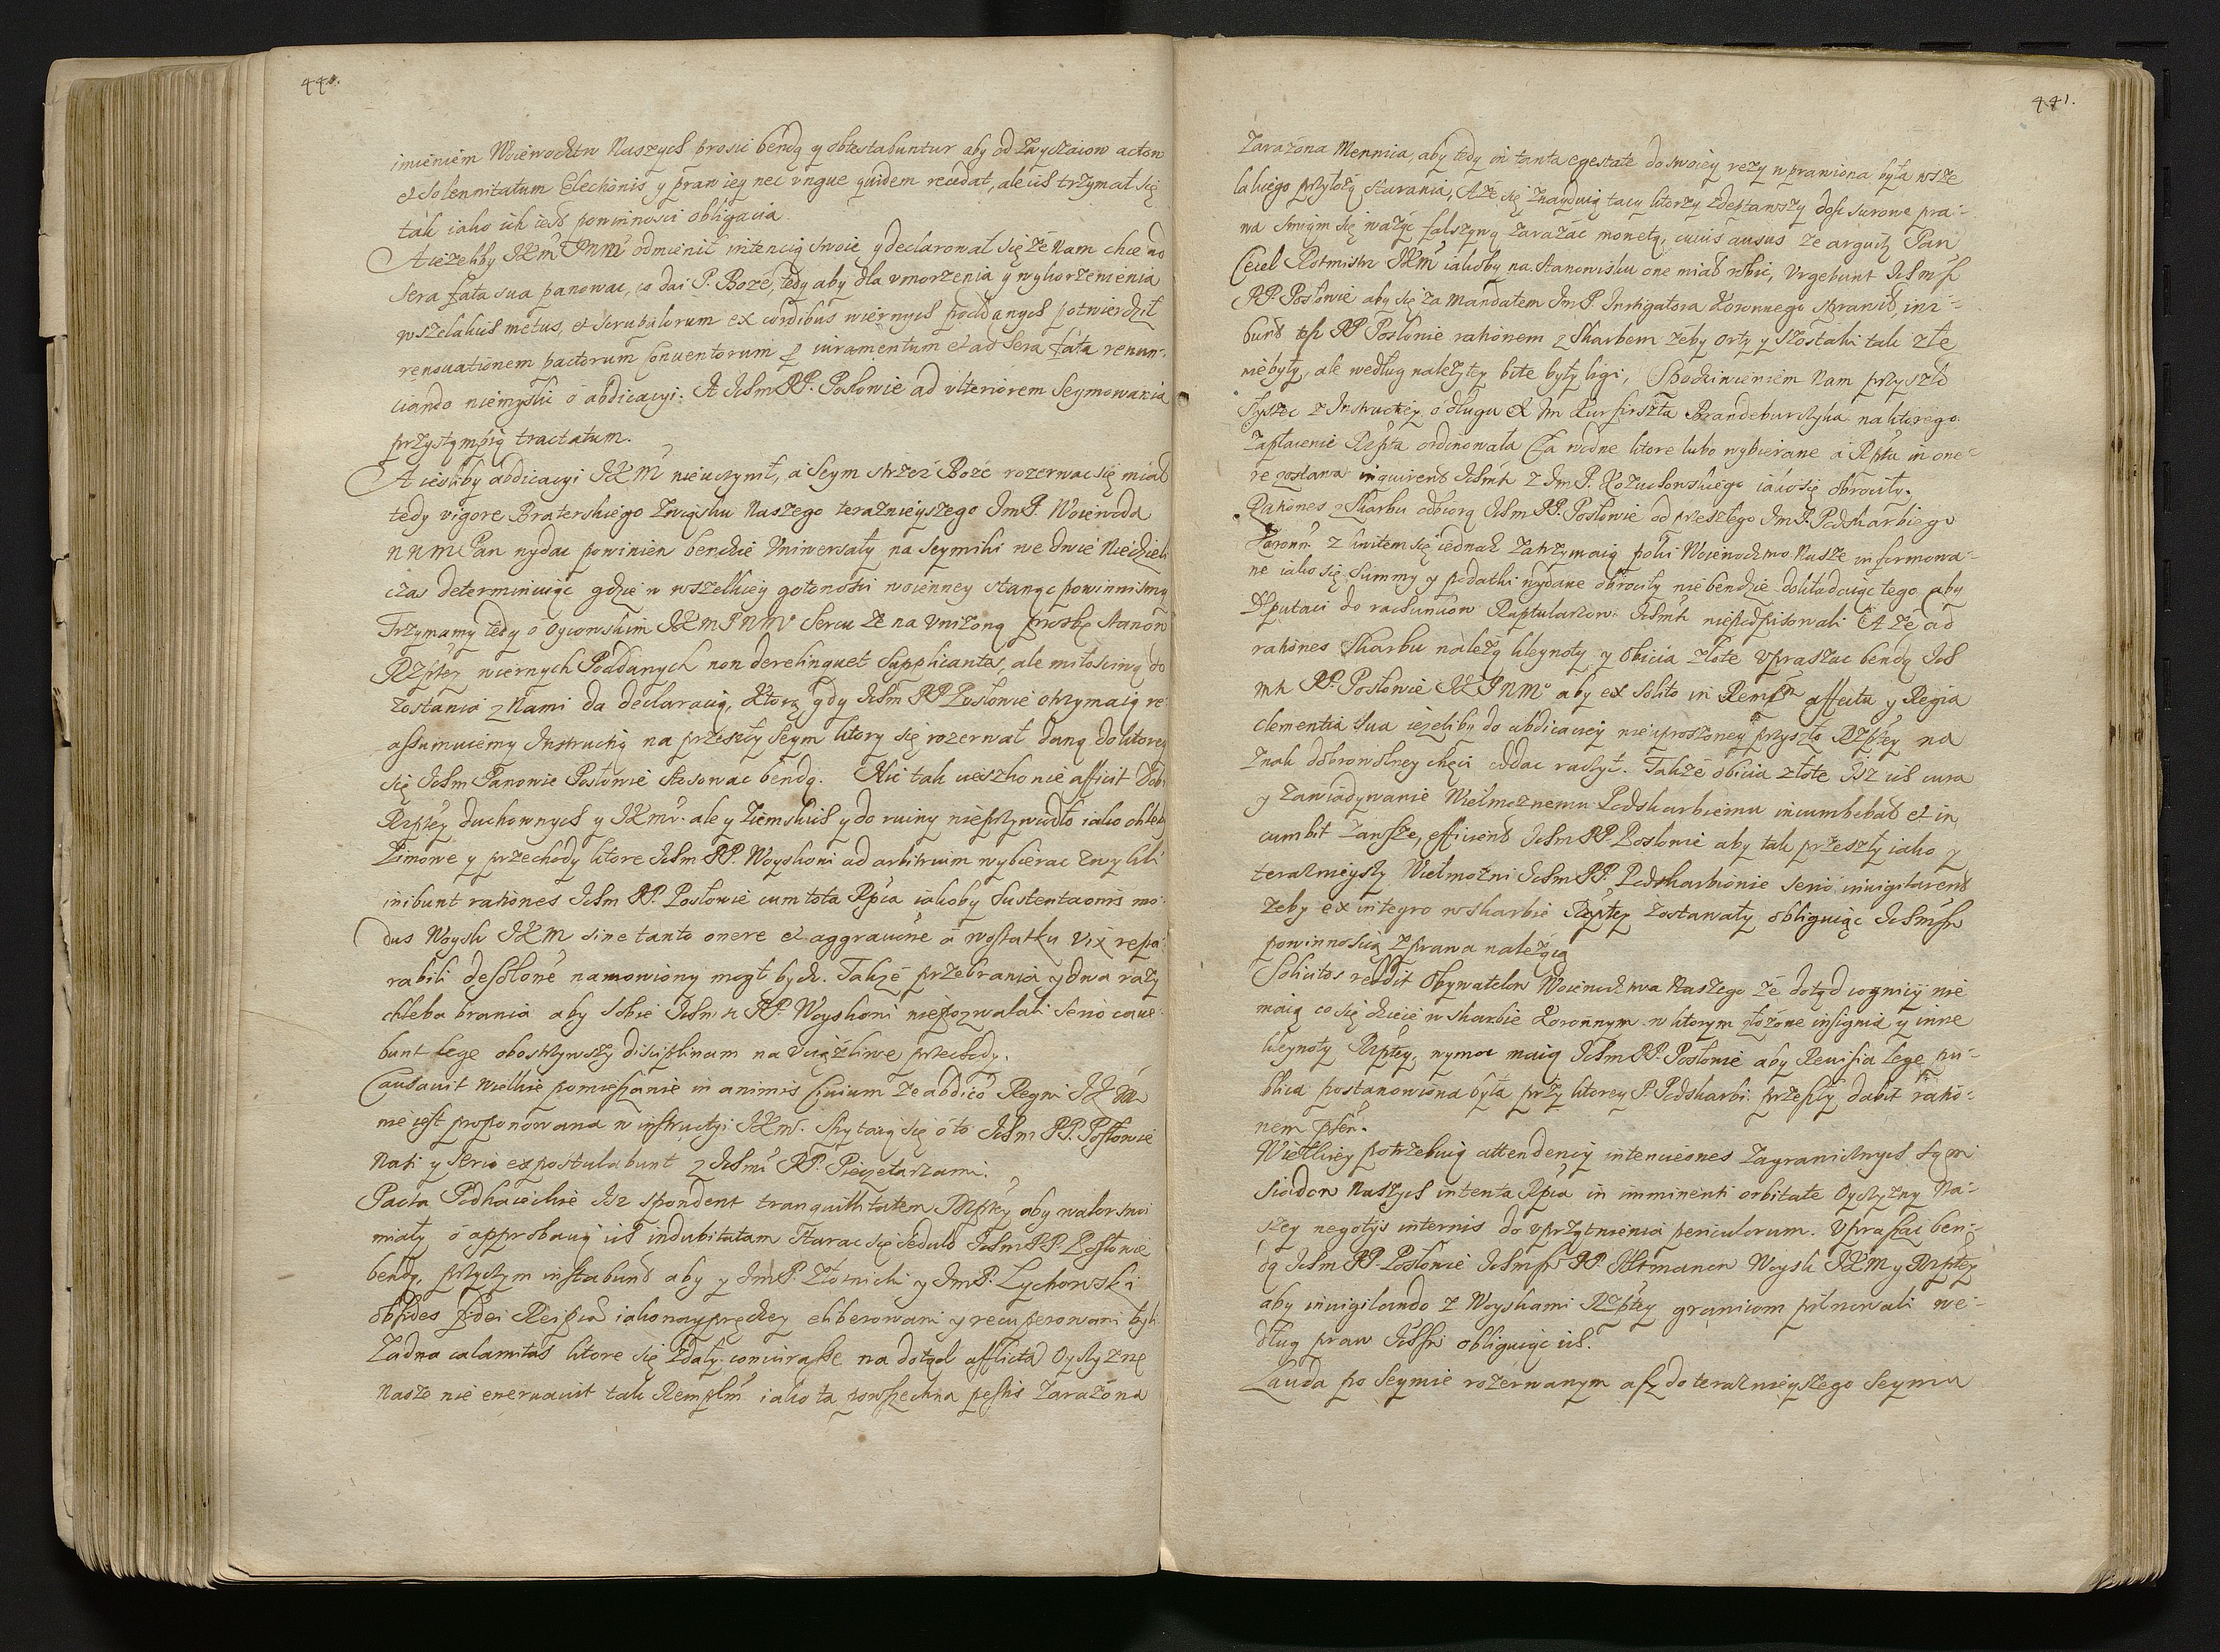 440.
imieniem Woiewodztw Naszych prosić bendą y obtestabuntur aby od zwyczaiow actow
et Solennitatum Electionis y praw iey nec vngue quidem recedat, ale ich trzymał się
tak iako ich iest powinnosci obligacia.
A ieżeliby JKM PNM odmienił intencią swoie y declarował się że Nam chce ad
sera fata sua panować, co dai P. Boże, tedy aby dla vmorzenia y wykorzenienia
wszelakich metus, et scrupulorum ex cordibus wiernych poddanych potwierdził
renouationem pactorum Conuentorum p iuramentum et ad Sera fata renun-
ciando niemyslić o abdicacyi. A IchmPP. Posłowie ad vlteriorem Seymowania
przystympią tractatum.
A iesliby abdicacyi JKM nieuczynił, a Seym strzeż Boże rozerwać się miał
tedy vigore Braterskiego Związku Naszego teraznieyszego JmP. Woiewoda
NNM Pan wydać powinien bendzie Vniwersały na Seymiki we dwie Niedzieli
czas determinuiąc gdzie w wszelkiey gotowości woienney stanąć powinnismy
Trzymamy tedy o oycowskim JKMPNM Sercu że na vniżoną prosbę Stanow
Rzptey wiernych Poddanych non derelinquet Supplicantes, ale miłosciwą do
zostania z Nami da declaracią, Ktorą gdy Ichm PP Posłowie otrzymaią re
assumuiemy Instructią na przeszły Seym ktory się rozerwał daną do ktorey
się Ichm Panowie Posłowie stosować bendą. Nic tak cieszko nie afficit Dobr
Rzptey duchownych y JKM. ale y Ziemskich y do ruiny nieprzywiodło iako chleby
Zimowe y przechody ktore Ichm PP. Woyskowi ad arbitrium wybierać zwykli
inibunt rationes Ichm PP. Posłowie cum tota Rpca iakoby Sustentaonis mo-
dus Woysk JKM sine tanto onere et aggrauone a wostatku vix repa
rabili desolone namowiony mogł bydz. Takze przebrania y dwa razy
chleba brania aby sobie Ichm PP. Woyskowi niepozwalali serio caue-
bunt lege obostrzywszy disciplinam na vciążliwe przechody.
Causauit wielkie pomięszanie in animis Ciuium że abdicō Regni JKM
nie iest proponowana w instructyi JKM. Spytaią się o to Ichm PP. Posłowie
Nasi y serio expostulabunt z Ichmi PP. Pieczętarzami.
Pacta Podhaieckie Isz spondent tranquillitatem Rzptey aby walor swoi
miały o approbacią ich indubitatam starac się sedulo IchmPP. Posłowie
bendą, przytym instabunt aby y JmP. Złotnicki y JmP. Lychowski
obsides fidei Reipca iakonayprędzey eliberowani y recuperowani byli.
Żadna calamitas ktore się zdały coniurasse na dotąd afflictā Oyczyznę
naszo nie eneruauit tak Remplm iako ta powszechna pestis Zarażona

441.
Zarażona Mennica, aby tedy in tanta egestate do swoiey rezy wprawiona była wsze
lakiego przyłożą starania, A że się znayduią tacy ktorzy zdeptawszy dosc surowe pra-
wa smieym się ważyć falszywą zarażać monetą, cuius ausus że arguit Pan
Ceul Rotmistrz JKM iakoby na stanowisku one miał robic, Vrgebunt Ichm
PP. Posłowie aby się za mandatem JmP. Instigatora Koronnego sprawił, ini-
bunt PP Posłowie rationem z Skarbem żeby Orty y szostaki tak złe
niebyły, ale według należytey bite były ligi, Podziwieniem Nam przyszło
słyszec z Instructiey o długu Je Jm Kurfirszta Brandeburczyka na ktorego
zapłacenie Rzpta ordinowała Cła wodne ktore lubo wybierane a Rpta in one-
re zostawa inquirent Ichmc z JmP. Kożuchowskiego iako się obrociły.
Rationes z Skarbu odbiorą Ichm PP. Posłowie od przeszłego JmP. Podskarbiego
Koronn. z kwitem się iednak zatrzymaią poki Woiewodztwo Nasze informowa-
ne iako się summy y podatki wydane obrociły niebendzie dokładaiąc tego aby
Deputaci do rachunkow Raptularzow Ichmc niepodpisowali A że ad
rationes Skarbu należą kleynoty y obicia złote vpraszać bendą Ich
mc PP. Posłowie JKPNM aby ex solito in Remplm affectu y Regia
clementia sua ieżeliby do abdicaciey nieuproszoney przyszło Rzptey na
Znak dobrowolney chęci oddać raczył. Także obicia złote Isz ich cura
y zawiadywanie Wielmożnemu Podskarbiemu incumbebat et in
cumbit zawsze, efficient Ichm PP. Posłowie aby tak przeszły iako y
teraznieyszy Wielmożni Ichm PP. Podskarbiowie serio inuigilarent
żeby ex integro w skarbie Rzptey zostawały obliguiąc Ichmc
powinnoscią z prawa należącą
Solicitos reddit Obywatelow Woiewodztwa Naszego że dotąd cognicij nie
maią co się dzieie w skarbie Koronnym w ktorym złożone insignia y inne
kleynoty Rzptey, wymoc maią Ichm PP. Posłowie aby Reuisia lege pu-
blica postanowiona była przy ktorey P. Podskarbi przeszły dabit ratio-
nem
Wielkiey potrzebuią attendenciy intenciones zagranicznych Sąsi
siadow Naszych intenta Rpca in imminenti orbitate Oyczyzny Na-
szey negotijs internis do vprzątnienia periculorum. Vpraszac ben-
dą Ichm PP. Posłowie Ichmc PP. Hetmanow Woysk JKM y Rzptey
aby inuigilando z Woyskami Rzptey granicom pilnowali we-
dług praw Ichmc obliguiąc ich.
Lauda po Seymie rozerwanym asz do teraznieyszego Seymu